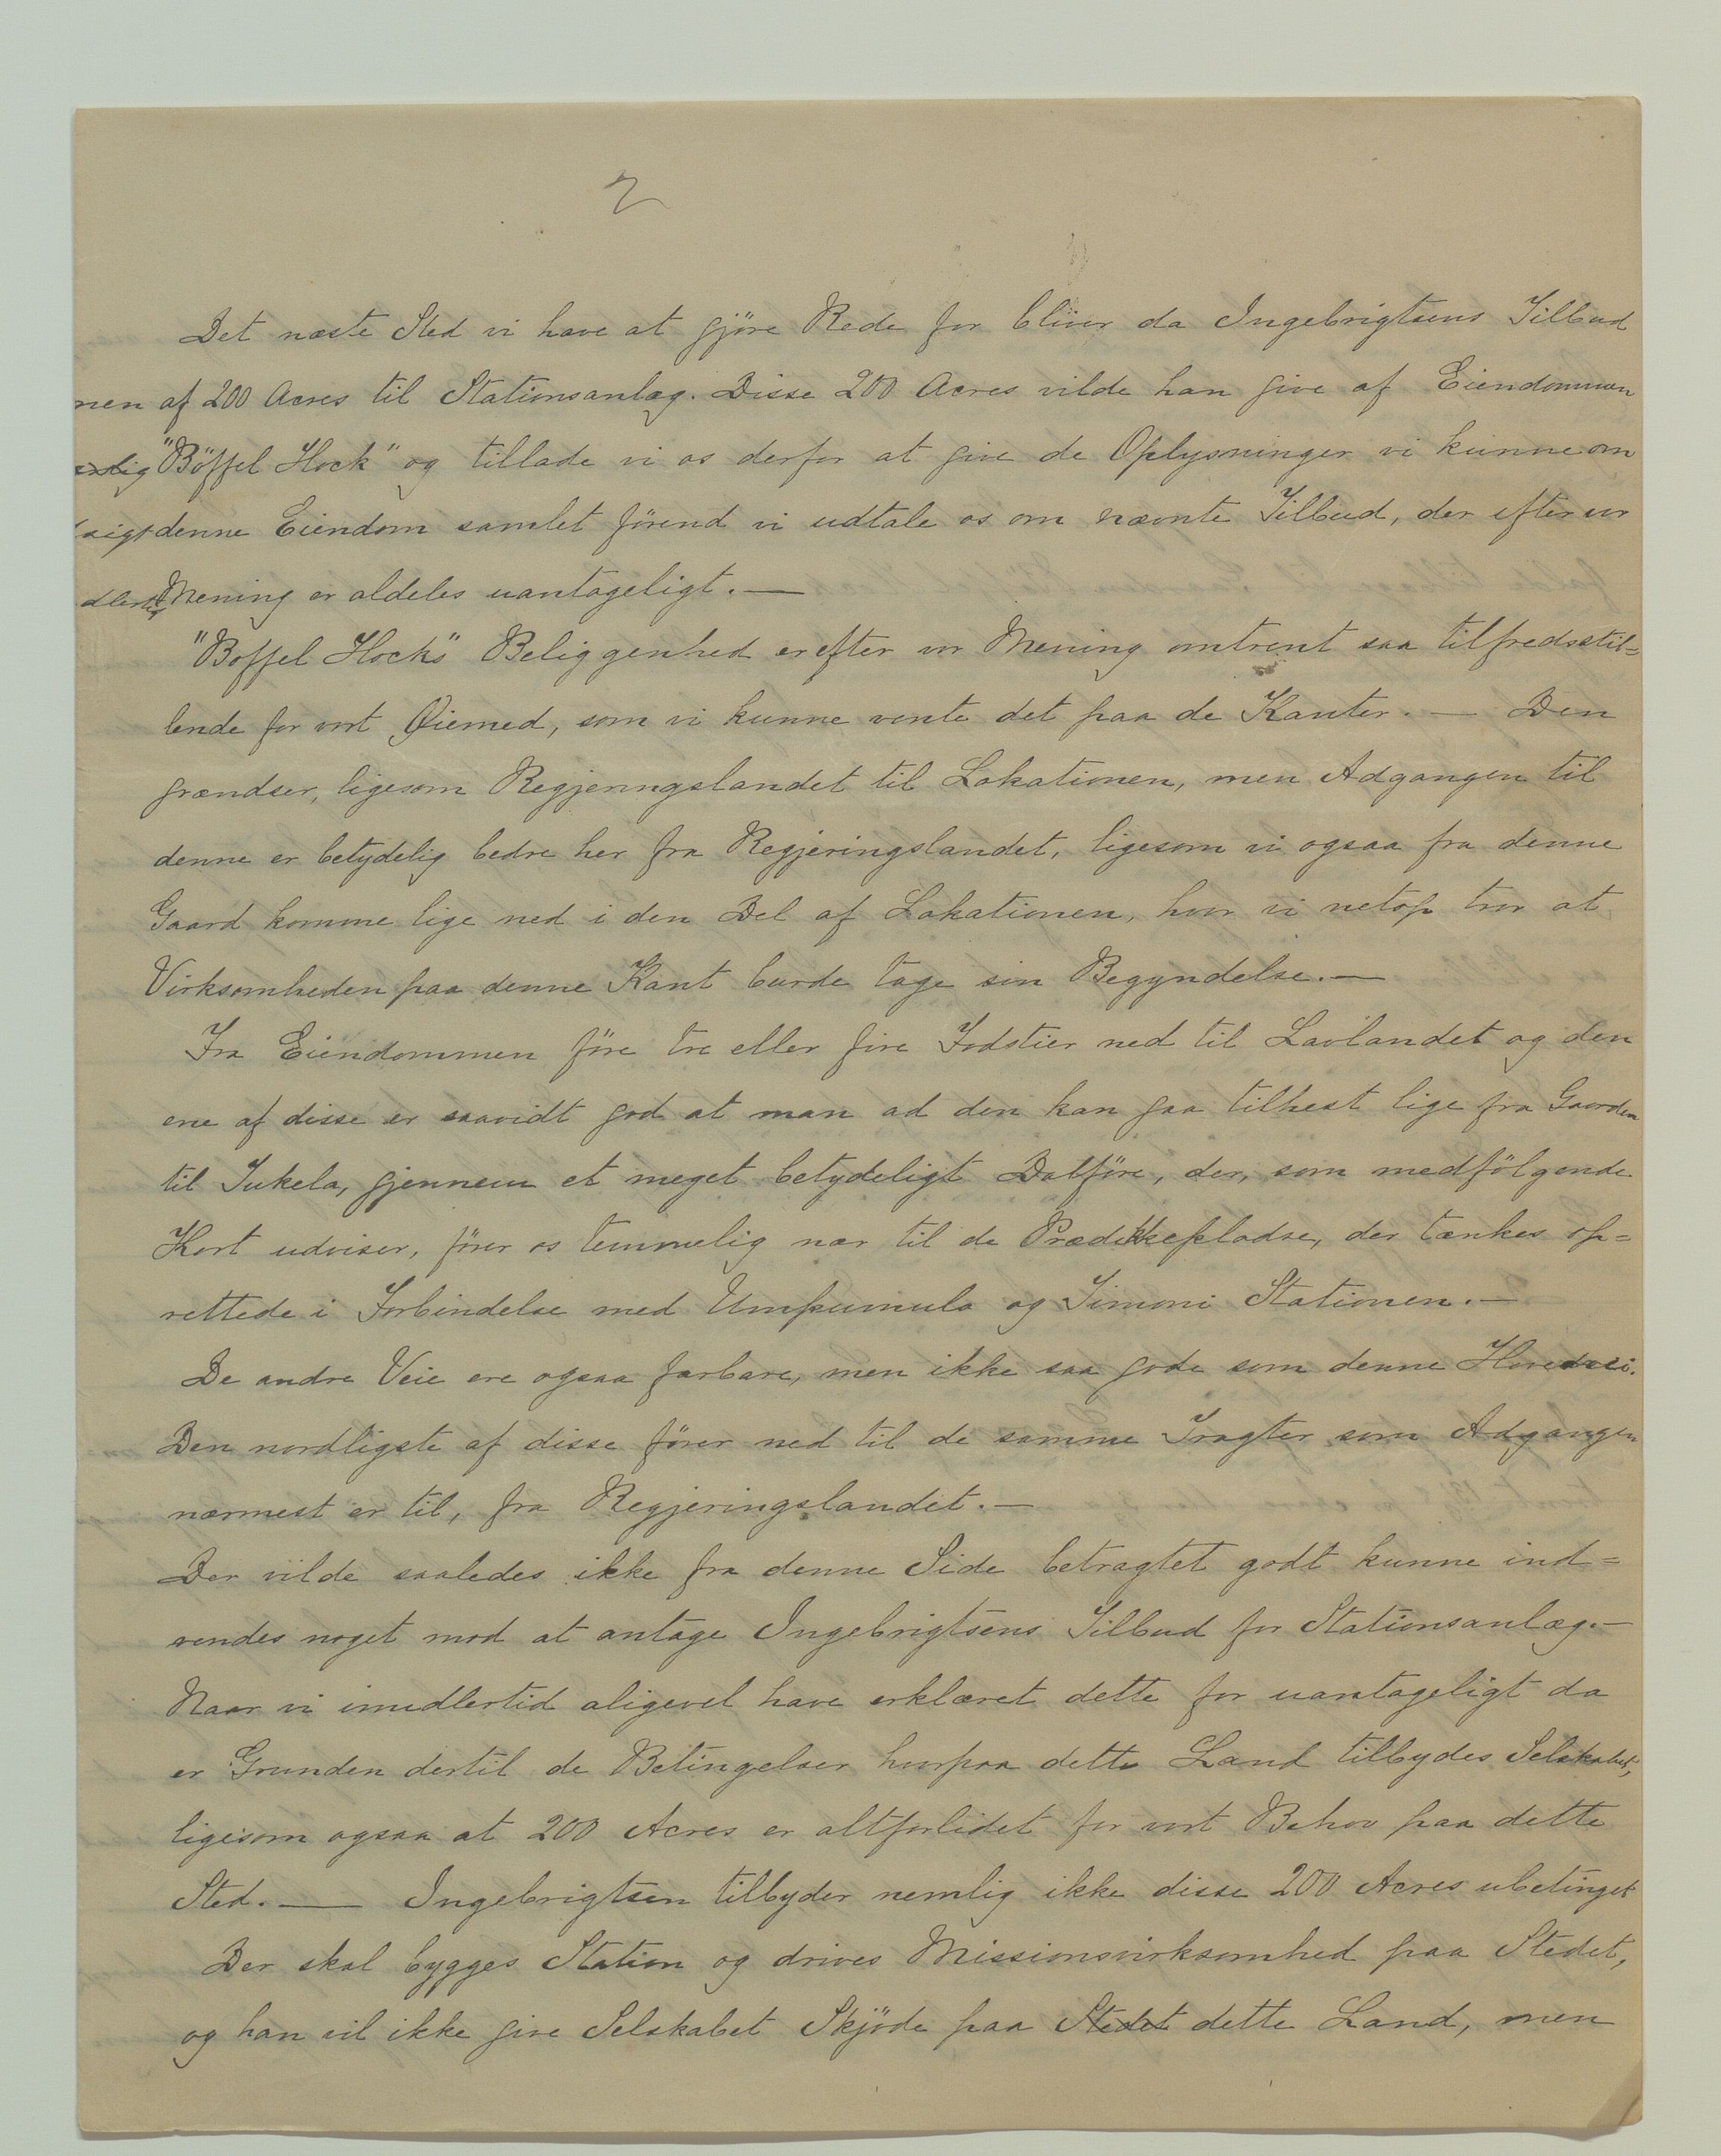 2
Det næste Sted vi have at gjöre Rede for bliver da Ingebrigtsens Tilbud
nen af 200 Acres til Stationsanlæg. Disse 200 Acres vilde han give af Eiendommen
"Böffel Hock" og tillade vi os derfor at give de Oplysninger vi kunne om
denne Eiendom samlet förend vi udtale os om nævnte Tilbud, der efter vor
Mening er aldeles uantageligt. —
"Boffel Hocks" Beliggenhed er efter vor Mening omtrent saa tilfredsstil=
lende for vort Øiemed, som vi kunne vente det paa de Kanter. — Den
grændser, ligesom Regjeringslandet til Lokationen, men Adgangen til
denne er betydelig bedre her fra Regjeringslandet, ligesom vi ogsaa fra denne
Gaard komme lige ned i den Del af Lokationen, hvor vi netop tror at
Virksomheden paa denne Kant burde tage sin Begyndelse. —
Fra Eiendommen före tre eller fire Fodstier ned til Lavlandet og den
ene af disse er saavidt god at man ad den kan gaa tilhest lige fra Gaarden
til Tukela, gjennem et meget betydeligt Dalföre, der, som medfölgende
Kort udviser, förer os temmelig nær til de Prædikkepladse, der tænkes op=
rettede i Forbindelse med Umpumulo og Simoni Stationen. —
De andre Veie ere ogsaa farbare, men ikke saa gode som denne Hovedvei.
Den nordligste af disse förer ned til de samme Tragter som Adgangen
nærmest er til, fra Regjeringslandet. —
Der vilde saaledes ikke fra denne Side betragtet godt kunne ind=
vendes noget mod at antage Ingebrigtsens Tilbud for Stationsanlæg. —
Naar vi imidlertid aligevel have erklæret dette for uantageligt da
er Grunden dertil de Betingelser hvorpaa dette Land tilbydes Selskabet,
ligesom ogsaa at 200 Acres er altforlidet for vort Behov paa dette
Sted. — Ingebrigtsen tilbyder nemlig ikke disse 200 Acres ubetinget
Der skal bygges Station og drives Missionsvirksomhed paa Stedet,
og han vil ikke give Selskabet Skjöde paa Stedet dette Land, men